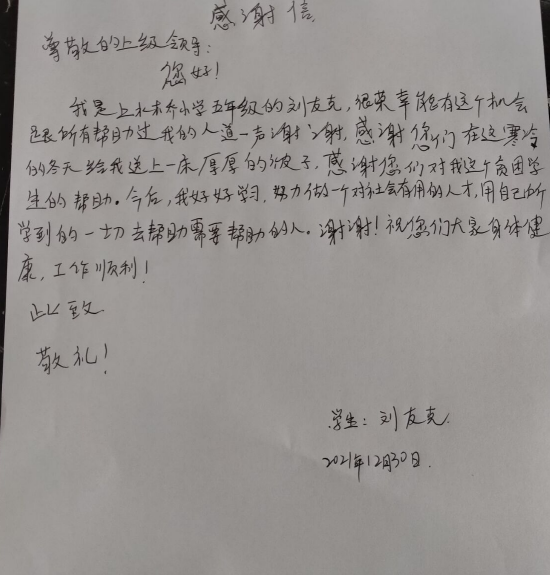 感谢信
尊敬的上级领导:
您好!
我是上木木乔小学五年级的刘友克,很荣幸能有这个机会
跟所有帮助过我的人道一声谢谢,感谢您们在这寒冷
的冬天给我送上一床厚厚的被子,感谢您们对我这个贫困学
生的帮助。今后,我好好学习,努力做一个对社会有用的人才,用自己所
学到的一切去帮助需要帮助的人。谢谢!祝您们大家身体健
康,工作顺利!
此致
敬礼!
学生:刘友克
2021年12月30日.